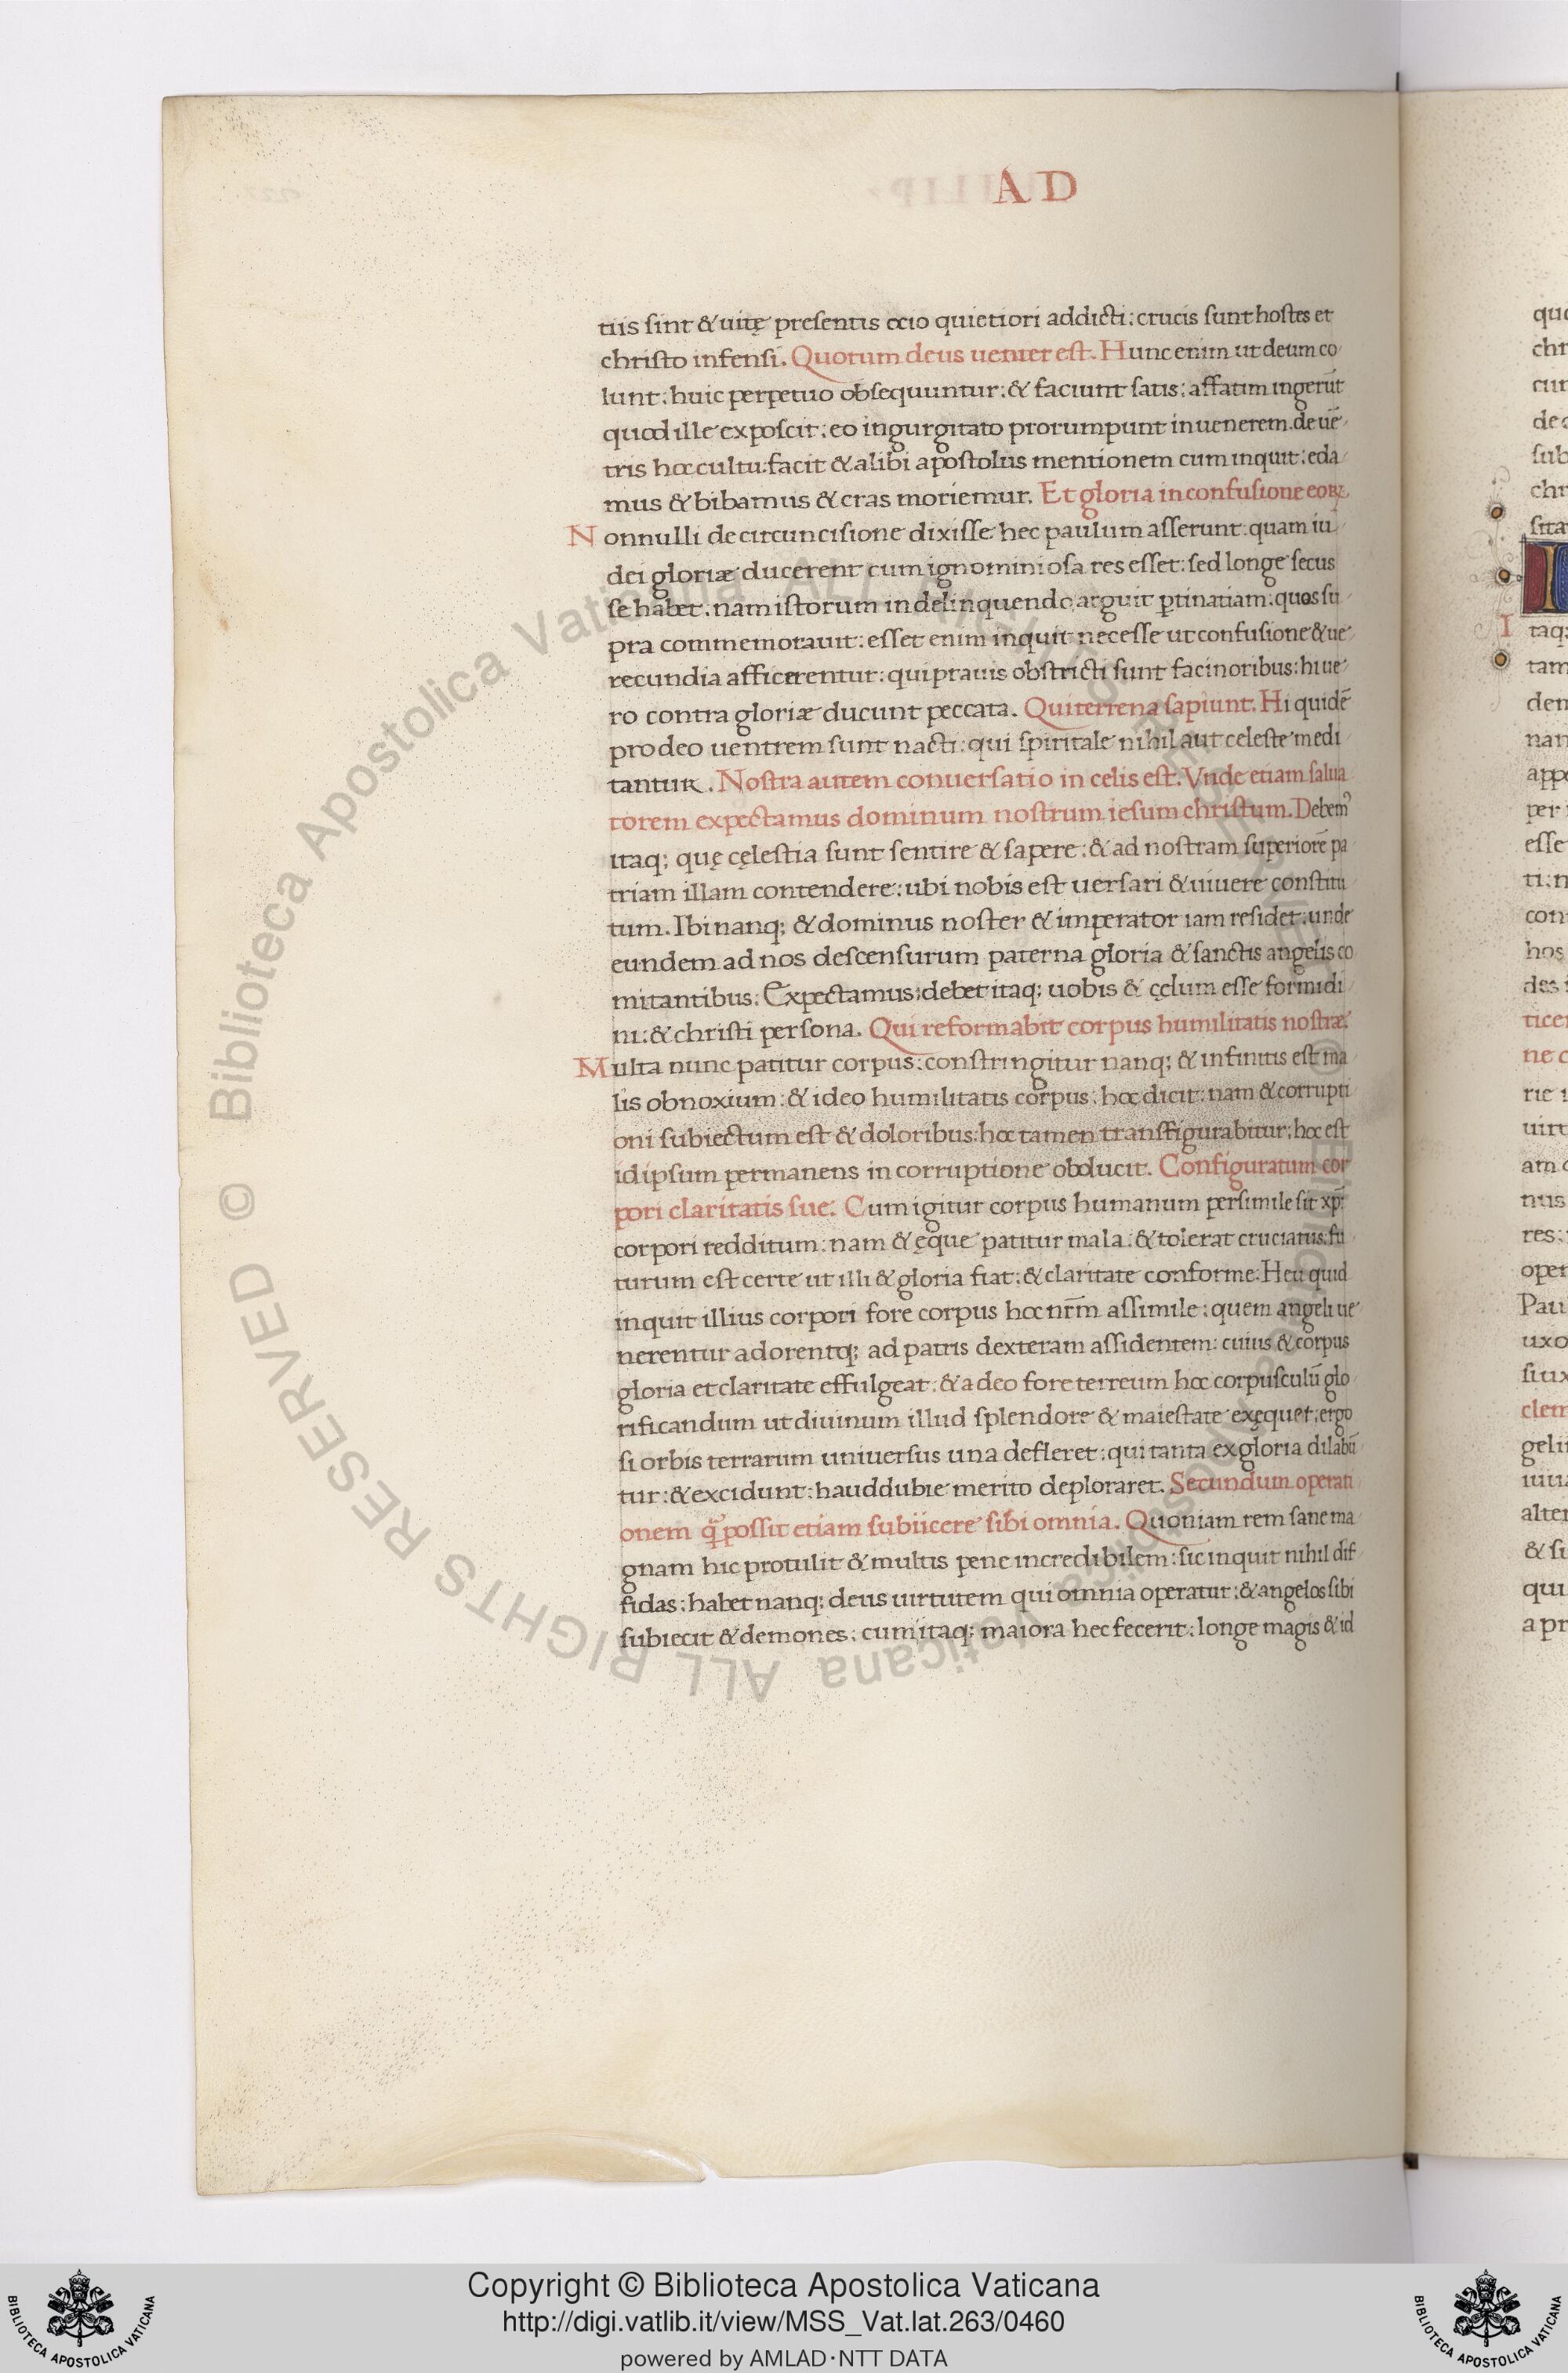 AD
tiis sint & uitę presentis ocio quietiori addicti: crucis sunt hostes et
christo infensi. Quorum deus uenter est. Hunc enim ut deum co
lunt: huic perpetuo obsequuntur: & faciunt satis: affatim ingerūt
quod ille exposcit: eo ingurgitato prorumpunt in uenerem. de uē
tris hoc cultu: facit & alibi apostolus mentionem cum inquit: eda
mus & bibamus & cras moriemur. Et gloria in confusione eoꝝ
Nonnulli de circuncisione dixisse hec paulum asserunt: quam iu
dei gloriæ ducerent cum ignominiosa res esset: sed longe secus
se habet: nam istorum in delinquendo arguit ꝑtinatiam: quos su
pra commemorauit: esset enim inquit necesse ut confusione & ue
recundia afficerentur: qui prauis obstricti sunt facinoribus: hi ue
ro contra gloriæ ducunt peccata. Qui terrena sapiunt. Hi quidē
pro deo uentrem sunt nacti: qui spiritale nihil aut celeste medi
tantur. Nostra autem conuersatio in celis est. Vnde etiam salua
torem expectamus dominum nostrum iesum christum. Debemꝰ
itaq; quę cęlestia sunt sentire & sapere: & ad nostram superiorē pa
triam illam contendere: ubi nobis est uersari & uiuere constitu
tum. Ibi nanq; & dominus noster & imperator iam residet: unde
eundem ad nos descensurum paterna gloria & sanctis angelis co
mitantibus: Expectamus: debet itaq; uobis & cęlum esse formidi
ni: & christi persona. Qui reformabit corpus humilitatis nostræ.
Multa nunc patitur corpus: constringitur nanq; & infinitis est ma
lis obnoxium: & ideo humilitatis corpus: hoc dicit: nam & corrupti
oni subiectum est & doloribus: hoc tamen transfigurabitur: hoc est
id ipsum permanens in corruptione obducit. Configuratum cor
pori claritatis sue. Cum igitur corpus humanum persimile sit xp̄i
corpori redditum: nam & ęque patitur mala: & tolerat cruciatus: fu
turum est certe ut illi & gloria fiat: & claritate conforme. Heu quid
inquit illius corpori fore corpus hoc nr̄m assimile: quem angeli ue
nerentur adorentq; ad patris dexteram assidentem: cuius & corpus
gloria et claritate effulgeat: & adeo fore terreum hoc corpusculū glo
rificandum ut diuinum illud splendore & maiestate exęquet: ergo
si orbis terrarum uniuersus una defleret: qui tanta ex gloria dilabū
tur: & excidunt: haud dubie merito deploraret. Secundum operati
onem q̄ possit etiam subiicere sibi omnia. Quoniam rem sane ma
gnam hic protulit & multis pene incredibilem: sic inquit nihil dif
fidas: habet nanq; deus uirtutem qui omnia operatur: & angelos sibi
subiecit & demones: cum itaq; maiora hec fecerit: longe magis & id
Copyright © Biblioteca Apostolica Vaticana
http://digi.vatlib.it/view/MSS_Vat.lat.263/0460
powered by AMLAD·NTT DATA